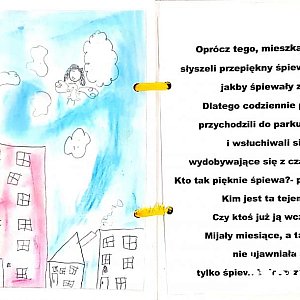 Oprócz tego, mieszka
słyszeli przepiękny śpiew
jakby śpiewały z
Dlatego codziennie p
przychodzili do parku
i wsłuchiwali si
wydobywające się z cz
Kto tak pięknie śpiewa?- p
Kim jest ta tejem
Czy ktoś już ją wcz
Mijały miesiące, a ta
nie ujawniała
tylko śpiew